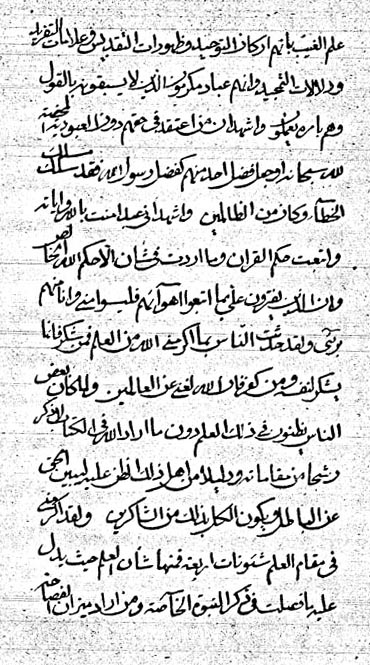 علم الغيب بانهم اركان التوحيد وظهورات التقديس وعلامات التفريد
ودلالات التمجيد وانهم عباد مكرمون الذين لا يسبقون بالقول
وهم بامره يعملون واشهد ان من اعتقد في حقهم دون العبودية المحضة
لله سبحانه او جعل فضل احد منهم كفضل رسول الله فقد سلك مسلك
الخطاء وكان من الظالمين واشهد اني عبد امنت بالله واياته
واتبعت حكم القران وما اردت في شان الا حكم الله
وان الذين يفترون علي بما اتبعوا اهوآئهم فليسوا مني وانا منهم
برئ ولقد حدثت الناس بما اكرمني الله من العلم فمن شكر فانما
يشكر لنفسه ومن كفر فان الله لغني عن العالمين ولما كان بعض
الناس يظنون في ذلك العلم دون ما اراد الله في الكتاب لاذكر
رشحا من مقاماته ودليلا من اهل ذلك عليه ليبين الحق
عن الباطل ويكون الكل بذلك من الشاكرين ولقد اكرمني
في مقام العلم شئونات اربعة فمنها شان العلم حيث يدل
عليه ما فصلت في ذكر النبوة الخاصة ومن اراد ميزان الفصاحة